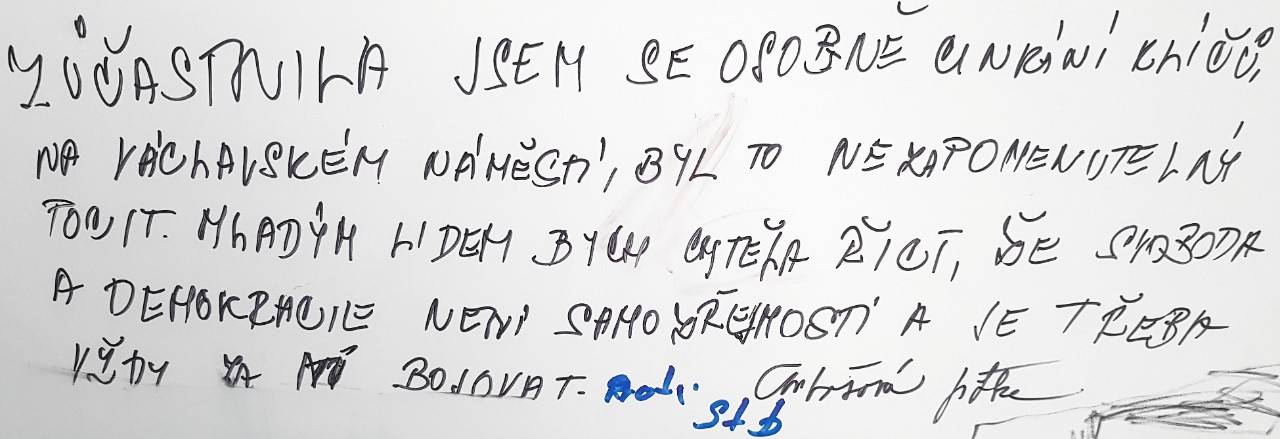 ZÚČASTNILA JSEM SE OSOBNĚ CINKÁNÍ KLÍČŮ,
NA VÁCLAVSKÉM NÁMĚSTÍ, BYL TO NEZAPOMENUTELNÝ
POCIT. MLADÝM LIDEM BYCH CHTĚLA ŘÍCI, ŽE SVOBODA
A DEMOKRACIE NENÍ SAMOZŘEJMOSTÍ A JE TŘEBA
VŽDY ZA NÍ BOJOVAT.
StB